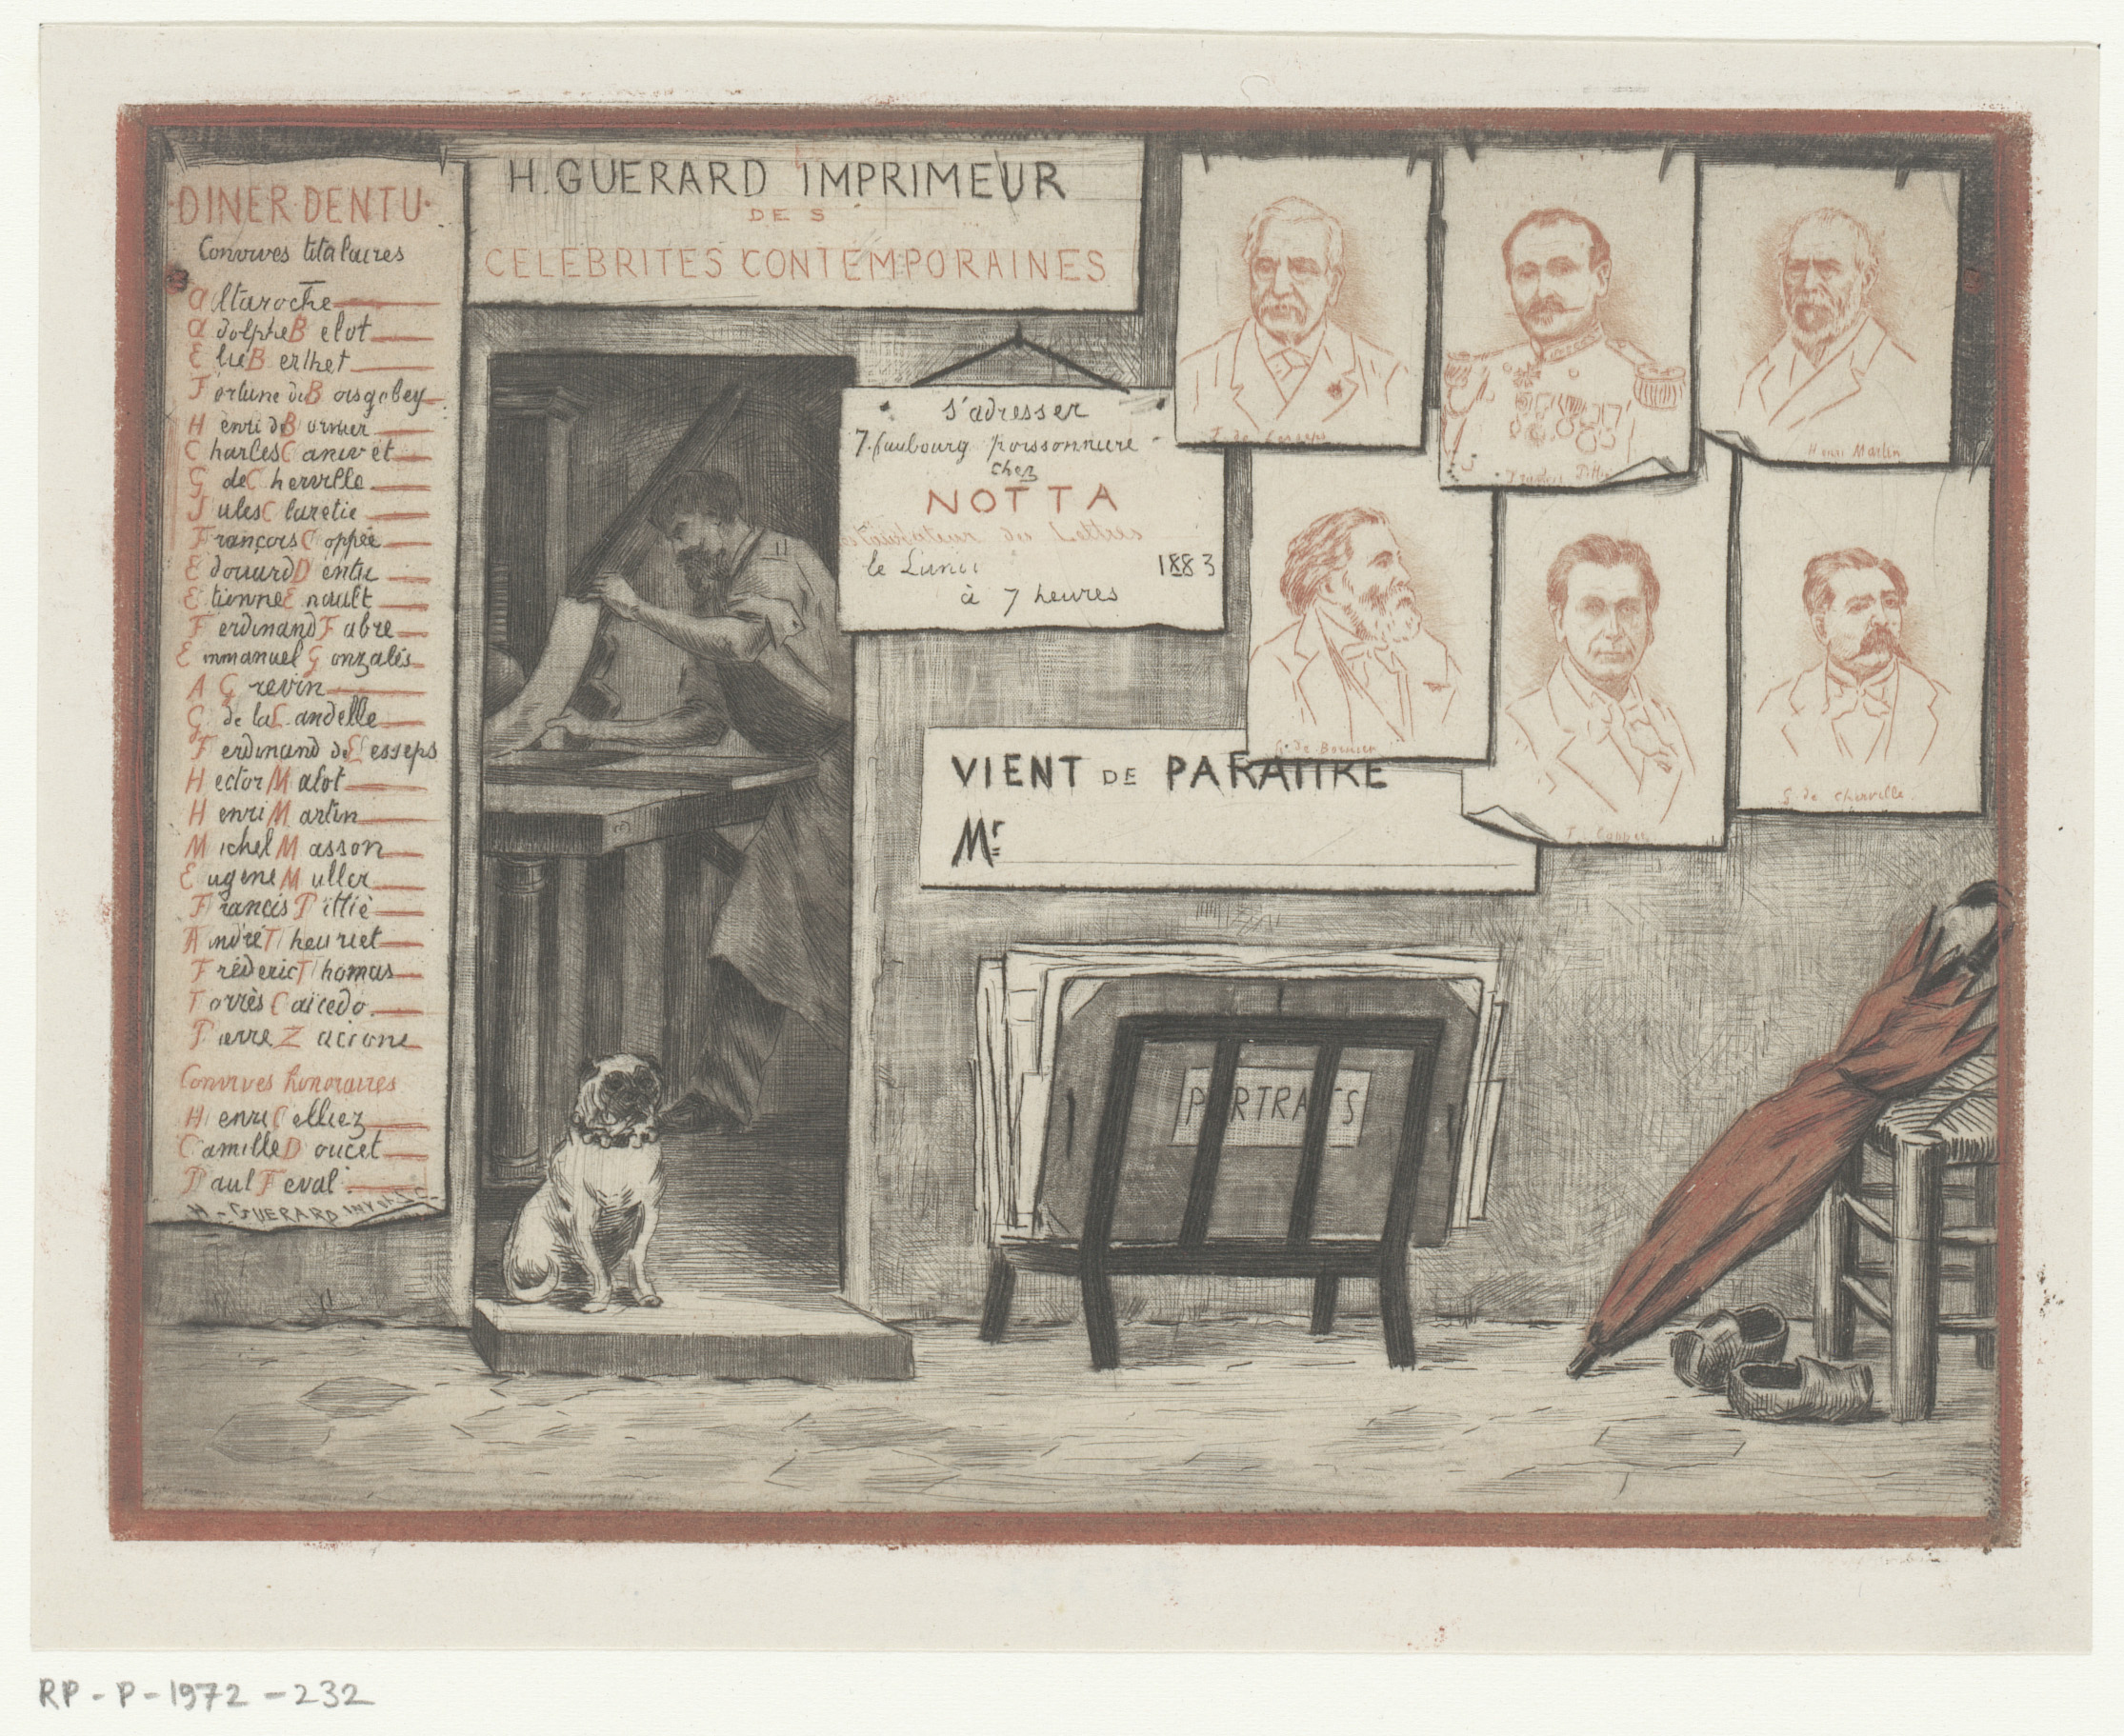 DINER DENTU
Convives titulaires
Altaroche
Adolphe Belot
Elie Berthet
Fortune du Boisgobey
Henri de Bornier
Charles Canivet
G de Cherville
Jules Claretie
François Coppée
Edouard Dentu
Etienne Enault
Ferdinand Fabre
Emmanuel Gonzalès
A Grevin
G de la Landelle
Ferdinand de Lesseps
Hector Malot
Henri Martin
Michel Masson
Eugene Muller
Francis Pittié
André Theuriet
Fréderic Thomas
Torrès Caïcedo
Pierre Zaccone
Convives honoraires
Henri Celliez
Camille Doucet
Paul Feval
H-GUERARD INV et SC-
H. GUERARD IMPRIMEUR
DES
CELEBRITES CONTEMPORAINES
S'adresser
7. faubourg poissonniere
chez
NOTTA
des Lettres
le Lundi 1883
à 7 heures
F de Lesseps
Francis Pittié
Henri Martin
H. de Bornier
F. Coppée
G. de Cherville
VIENT DE PARAITRE
Mr
PORTRAITS
RP-P-1972-232